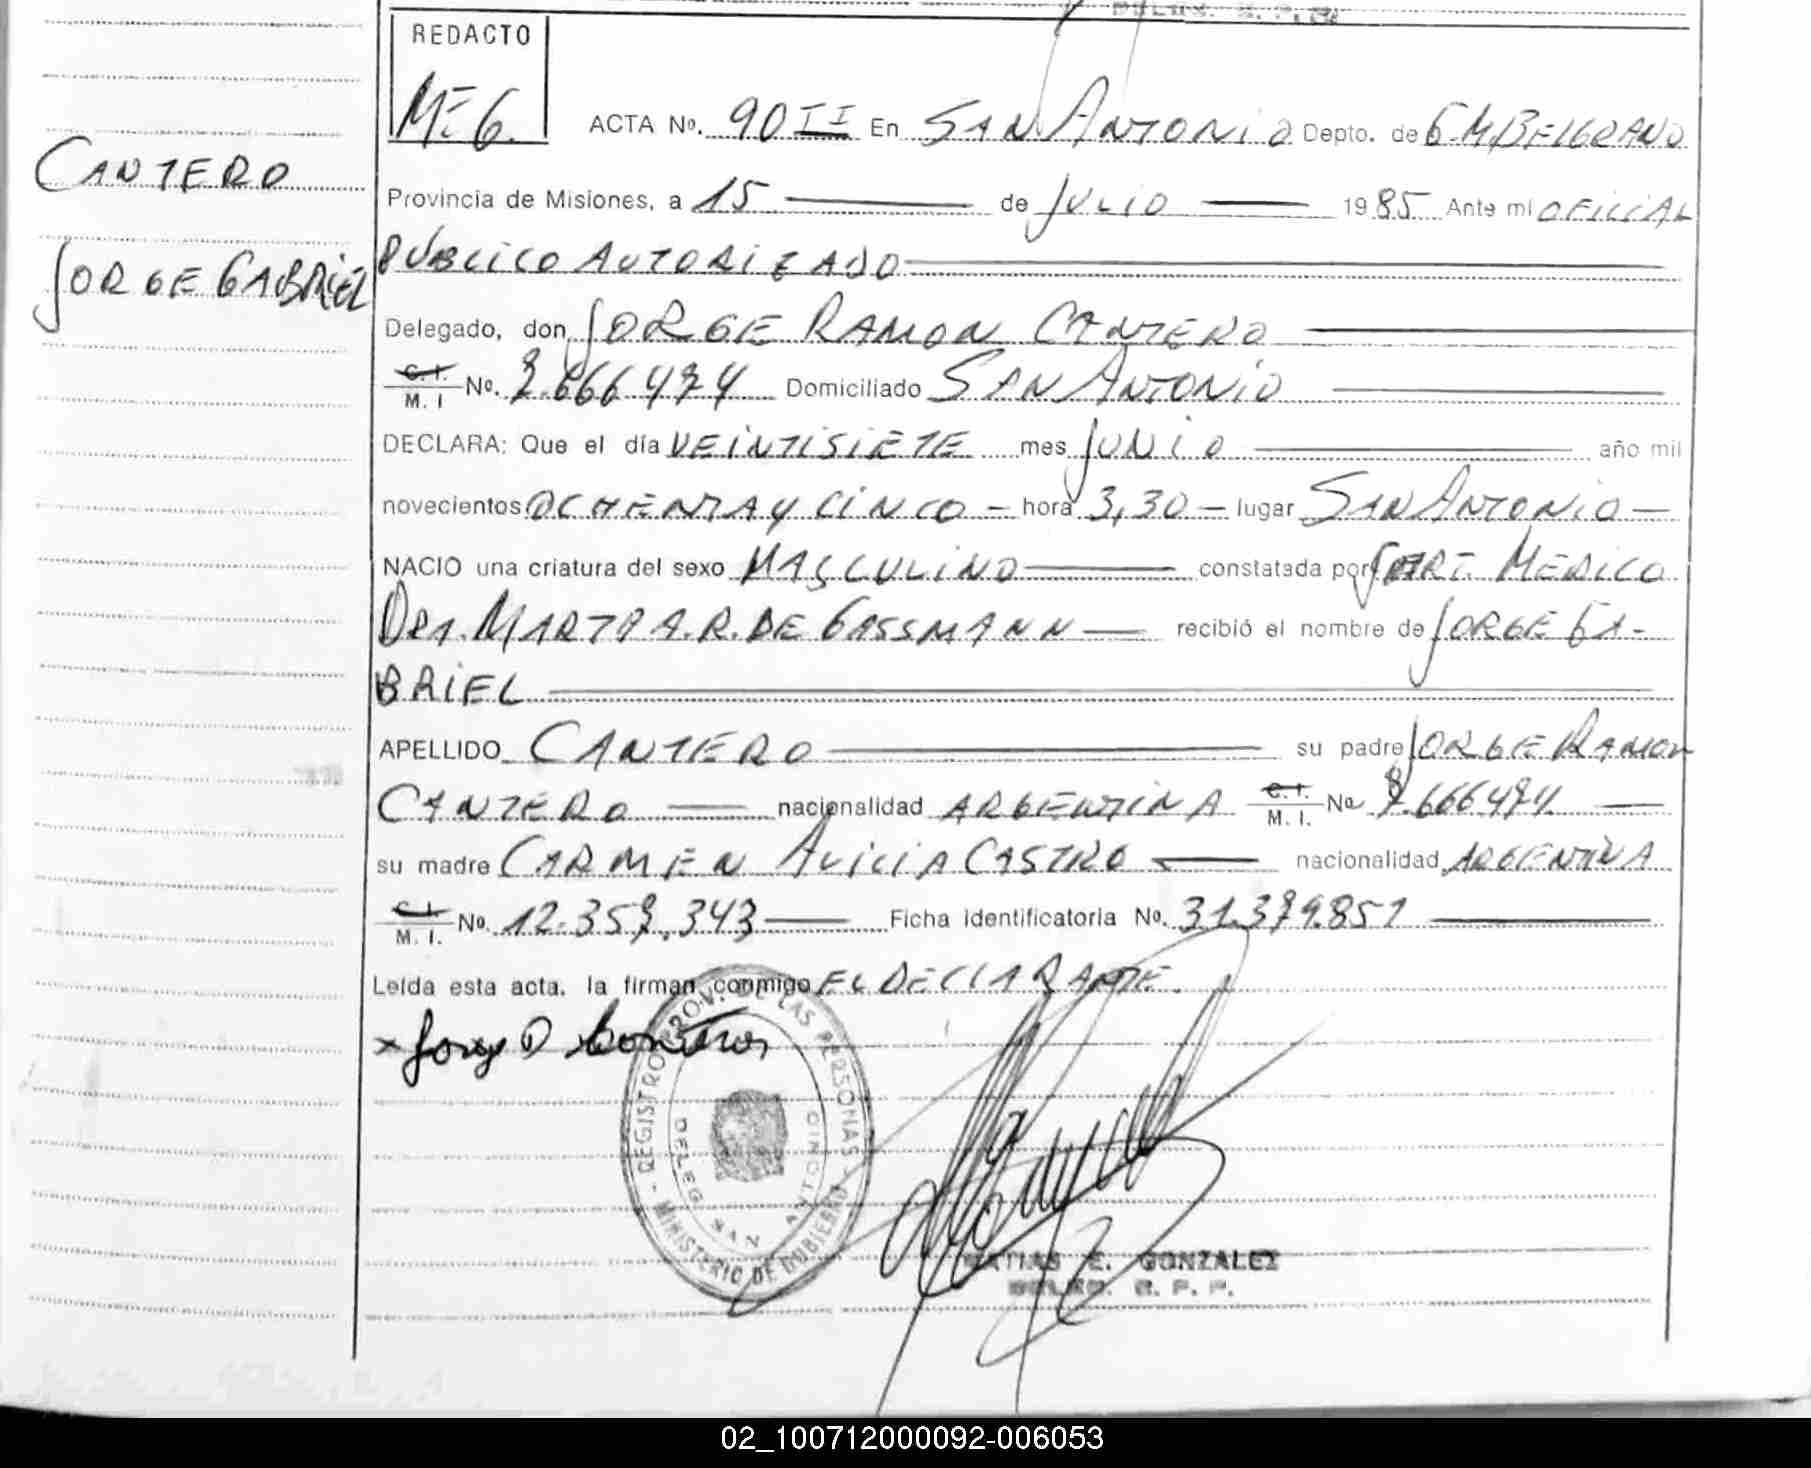 REDACTO
M.E.G.
ACTA Nº. 90 II En SAN ANTONIO Depto. de G.M.BELGRANO
CANTERO
Provincia de Misiones, a 15 de JULIO 1985 Ante mi OFICIAL
JORGE GABRIEL
PUBLICO AUTORIZADO
Delegado, don JORGE RAMON CANTERO
C. I. M. I Nº. 7.666474 Domiciliado SAN ANTONIO
DECLARA: Que el día VEINTISIETE mes JUNIO año mil
novecientos OCHENTA Y CINCO - hora 3,30 - lugar SAN ANTONIO -
NACIO una criatura del sexo MASCULINO constatada por CERT. MEDICO
DRA. MARTA A. R. DE GASSMANN recibió el nombre de JORGE GA-
BRIEL
APELLIDO CANTERO su padre JORGE RAMON
CANTERO nacionalidad ARGENTINA C. I. M. I. Nº 7.666474
su madre CARMEN ALICIA CASTRO nacionalidad ARGENTINA
C. I. M. I. Nº. 12.357.343 Ficha identificatoria Nº. 31.379.851
Leída esta acta, la firman conmigo EL DECLARANTE.
REGISTRO PROV. DE LAS PERSONAS
MINISTERIO DE GOBIERNO
DELEG. SAN ANTONIO
MATIAS E. GONZALEZ
02_100712000092-006053